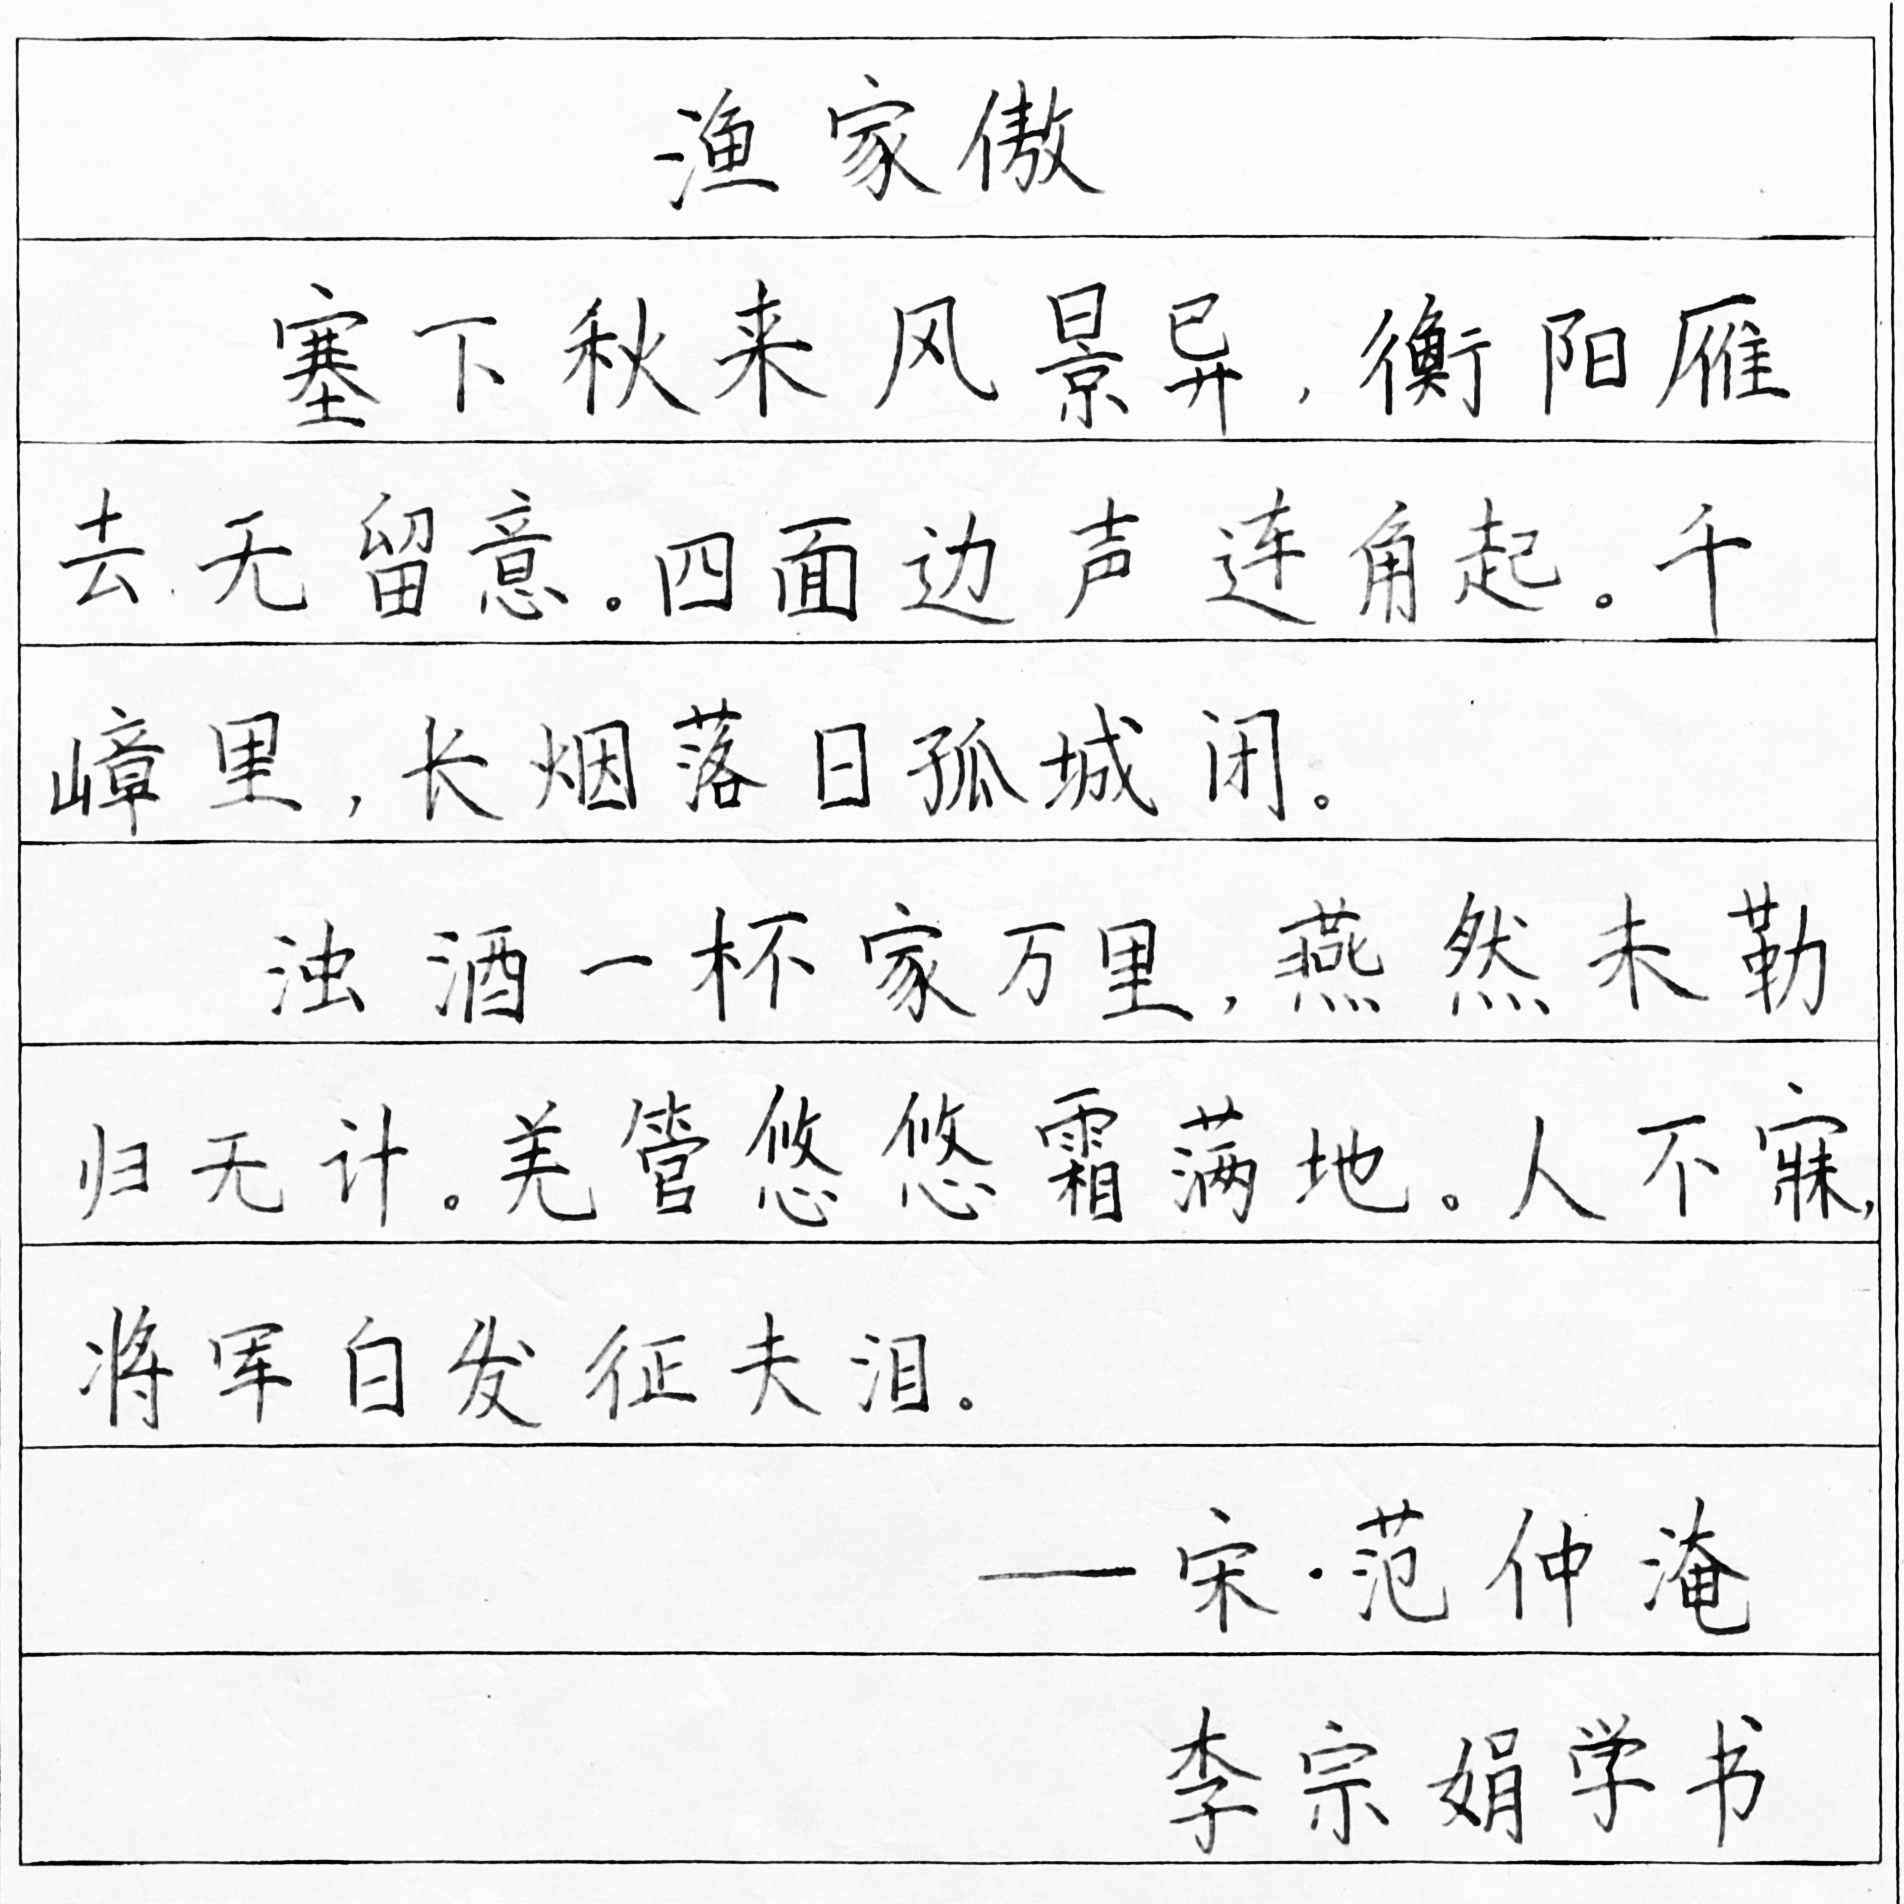 渔家傲
塞下秋来风景异，衡阳雁
去无留意。四面边声连角起。千
嶂里，长烟落日孤城闭。
浊酒一杯家万里，燕然未勒
归无计。羌管悠悠霜满地。人不寐，
将军白发征夫泪。
——宋·范仲淹
李宗娟学书